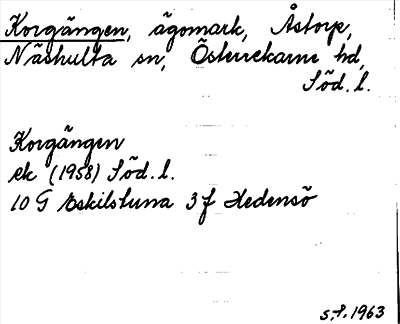 Korgängen, ägomark, Åstorp,
Näshulta sn, Österrekarne hd,
Söd. l.
Korgängen
ek (1958) Söd. l.
10 G Eskilstuna 3 f Hedensö
s. 1963